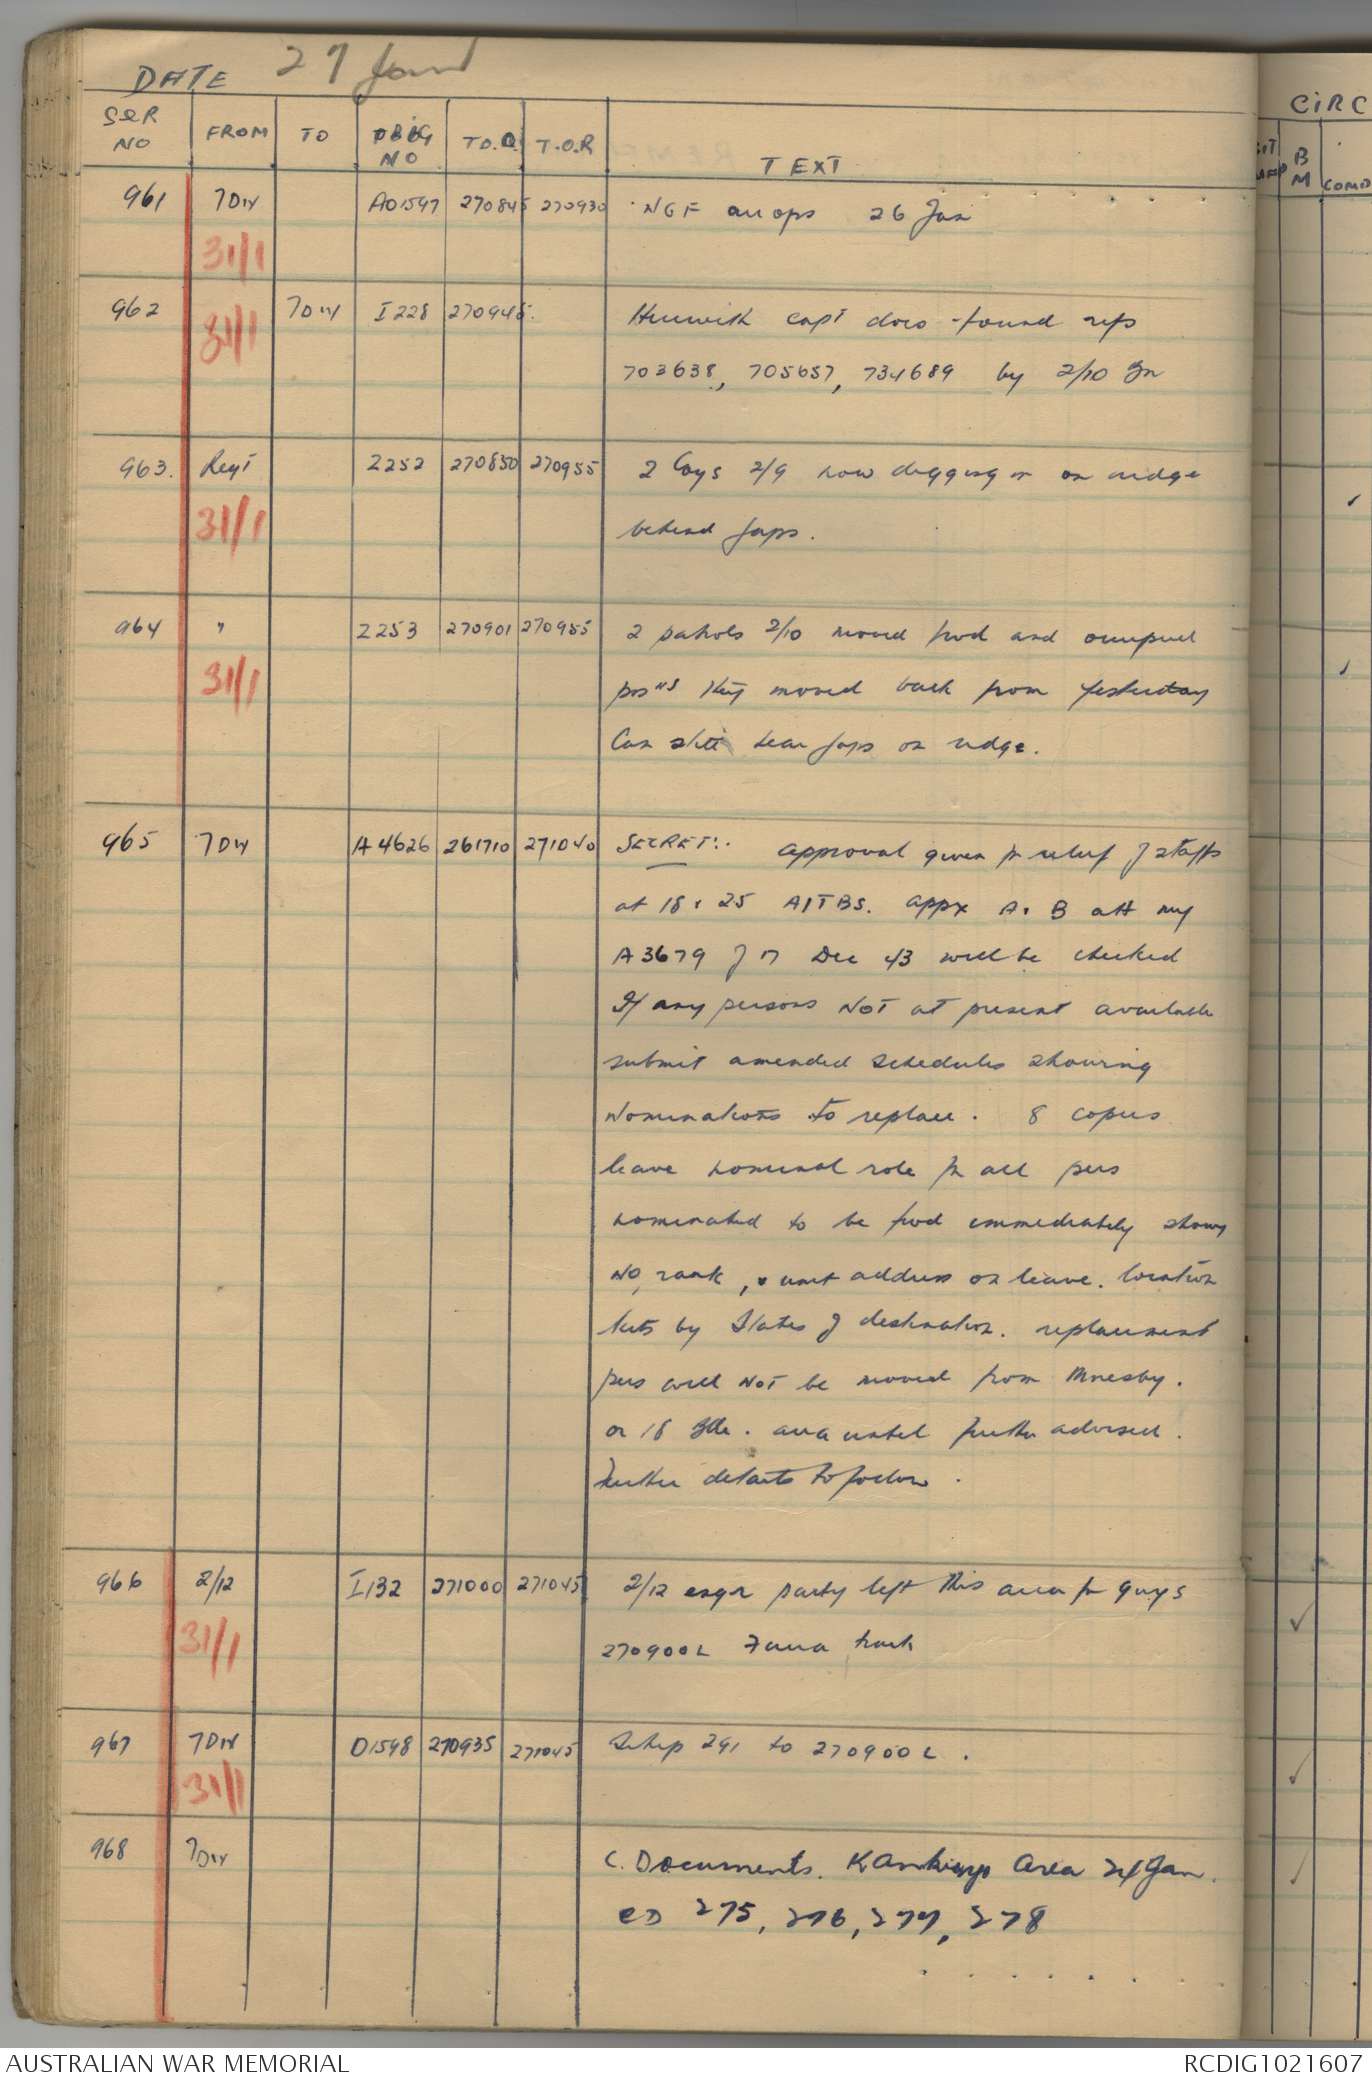 DATE 27 Jan
SER NO FROM TO ORIG NO T.O.O. T.O.R TEXT
961 7 Div AO1597 270845 270930 NGF air ops 26 Jan
31/1
962 7 Div I228 270945. Herewith capt docs found refs
31/1
703638, 705657, 734689 by 2/10 Bn
963. Regt Z252 270850 270955 2 Coys 2/9 now digging in on ridge
31/1
behind Japs.
964 " Z253 270901 270955 2 patrols 2/10 moved fwd and occupied
31/1
posns they moved back from yesterday
Can still hear Japs on ridge.
965 7 Div A4626 261710 271040 SECRET:. approval given for relief of staffs
at 18 & 25 AITBS. appx A & B att my
A3679 of 17 Dec 43 will be checked
If any persons NOT at present available
submit amended schedules showing
nominations to replace. 8 copies
leave nominal role for all pers
nominated to be fwd immediately showg
No, rank, & unit address on leave. location
kits by States of destination. replacement
pers will NOT be moved from Moresby.
or 18 Bde. area until further advised.
Further details to follow.
966 2/12 I132 271000 271045 2/12 engr party left this area for Guys
31/1
270900L Faria track
967 7 Div O1598 270935 271045 Sitrep 291 to 270900L.
31/1
968 7 Div C. Documents. Kankiryo Area 24 Jan.
ED 275, 276, 277, 278
CIRC
BM
COMD
AUSTRALIAN WAR MEMORIAL RCDIG1021607